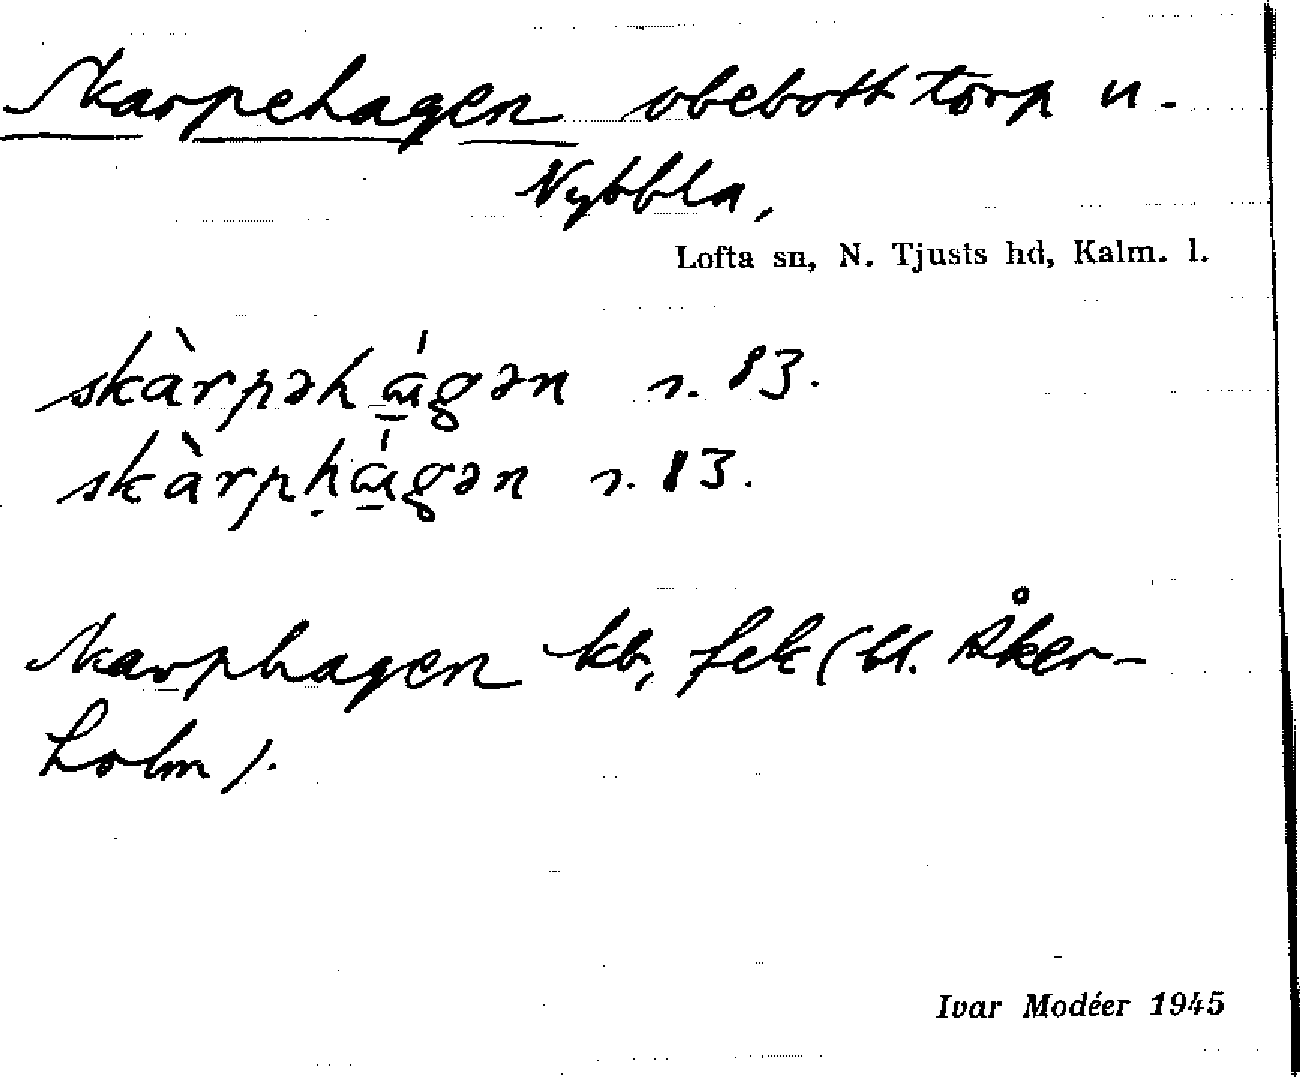 Skarpehagen obebott torp u.
Nybbla,
Lofta sn, N. Tjusts hd, Kalm. l.
skàrpəhά̱gən s. 83.
skàrpḥά̱gən s. 83.
Skarphagen kb, fek (bl. Åker-
holm).
Ivar Modéer 1945